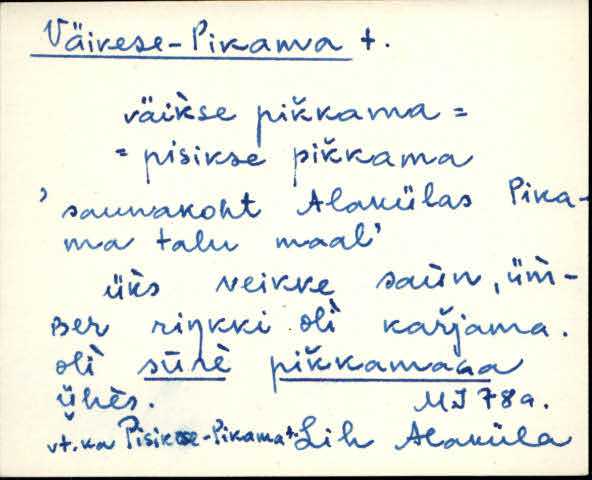 Väikese-Pikama t.
väik̀se pik̆kama =
= pisikse pik̆kama
'saunakoht Alakülas Pika-
ma talu maal'
ük̀s veikke saùn, üm̀-
ber riŋkki olì kar̆jama.
olì sūrè pik̆kamaGa
ühès. MJ 78 a.
vt. ka Pisikese-Pikama t. Lih Alaküla